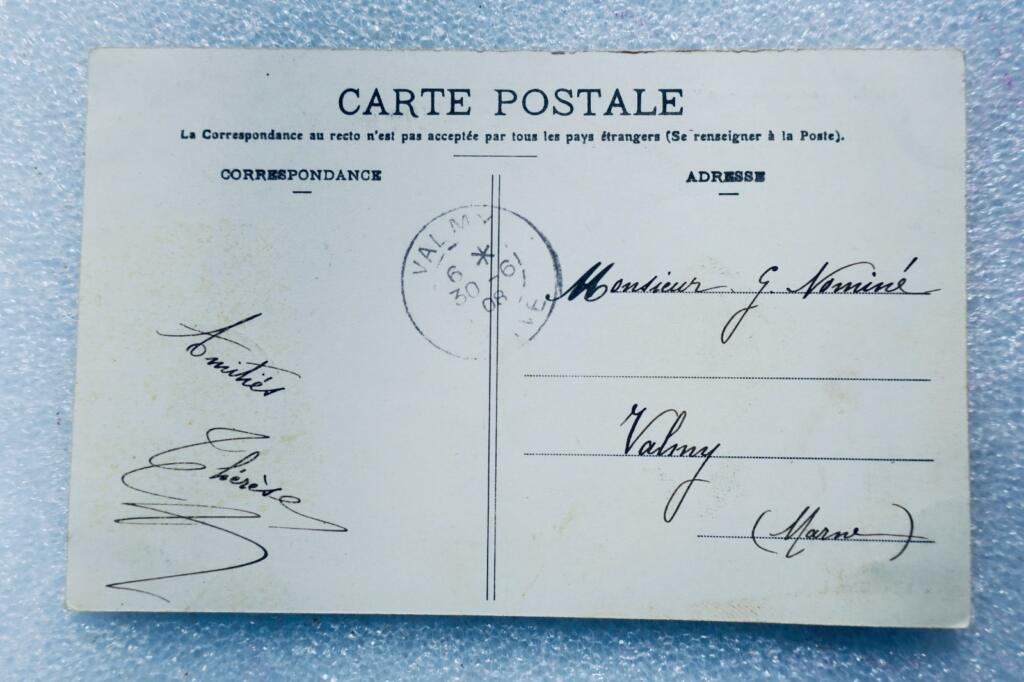 CARTE POSTALE
La Correspondance au recto n'est pas acceptée par tous les pays étrangers (Se renseigner à la Poste).
CORRESPONDANCE
ADRESSE
VALMY
6 * 6
30 -
08
NE
Amitiés
Thérèse
Monsieur G. Nominé
Valmy
(Marne)